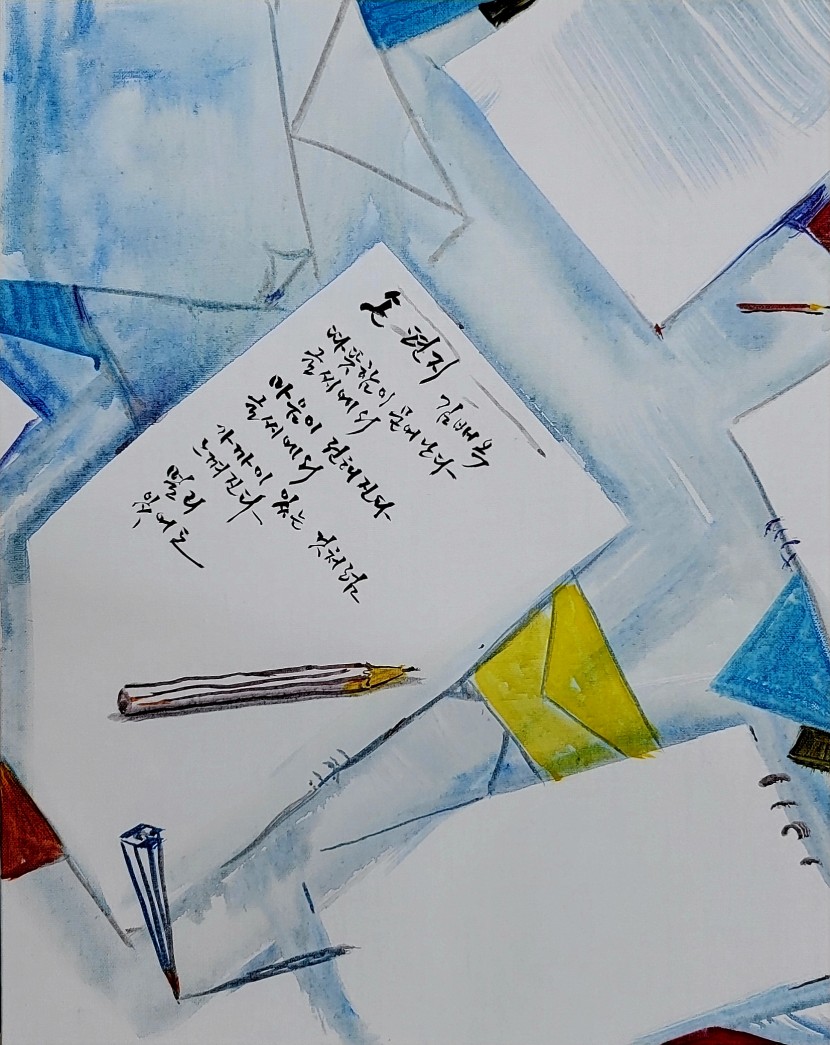 손 편지
김배옥
따뜻함이 묻어난다
글씨에서
마음이 전해진다
글씨에서
가까이 있는 것처럼
느껴진다
멀리
있어도